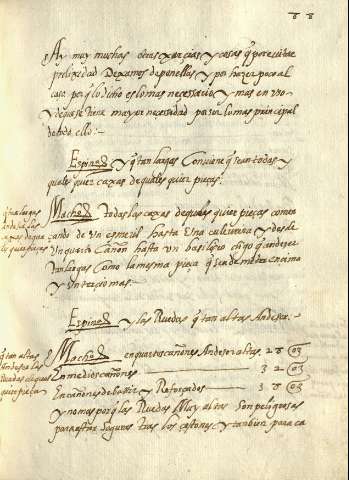 8 8
Ay muy muchas otras xarcias, y cosas q por evitar
prolixidad Dexamos de ponellas y por hazer poco al
caso porq lo dicho es lo mas necessario y mas en uso
y de que se tiene mayor necesidad por ser lo mas principal
de todo ello:~
Espinel y q tan largas Conviene q sean todas y
quales quier caxas de quales quier pieças.
q tan largas
Machado Todas las caxas de quales quier pieças comen
le quier pieças
çando de Un esmeril hasta Una culebrina y desde
Un quarto Cañon hasta un basilisco digo q an de ser
Tan largas Como la mesma pieça
y Un tercio mas.
Espinel y las Ruedas q tan altas An de ser.
q tan altas
An de ser las
Ruedas de qual
quier pieça
Machado en quartos cañones An de ser altas
En medios cañones
En cañones de batir y Reforçados
y no mas porq las Ruedas Muy altas Son peligrosas
para estar seguros tras los cestones y tambien para ca